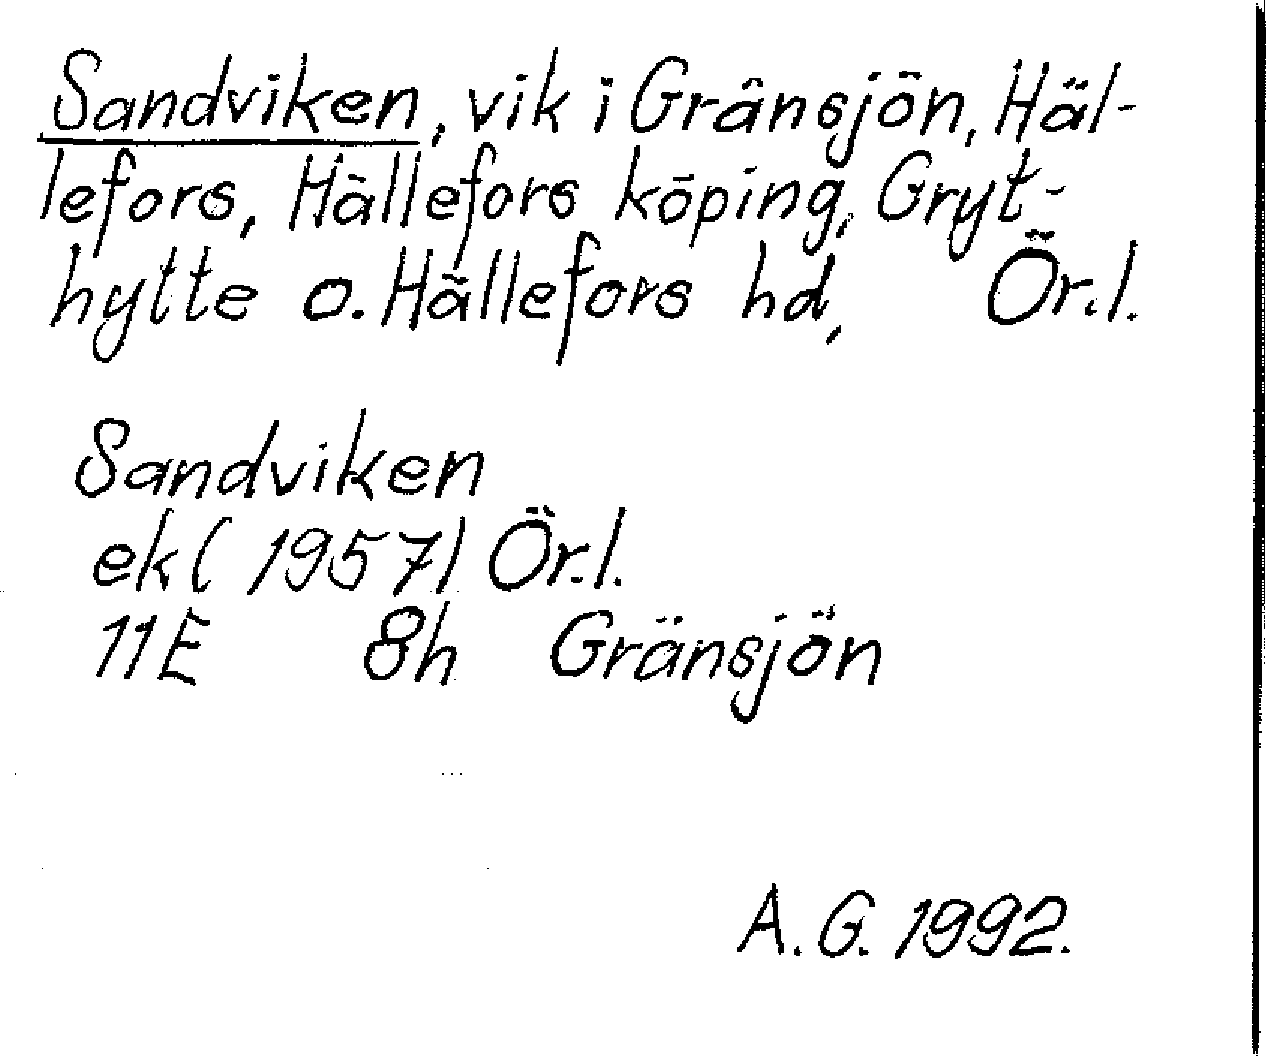 Sandviken, vik i Gränsjön, Häl-
lefors, Hällefors köping, Gryt-
hytte o. Hällefors hd, Ör.l.
Sandviken
ek (1957) Ör.l.
11E 8h Gränsjön
A.G. 1992.